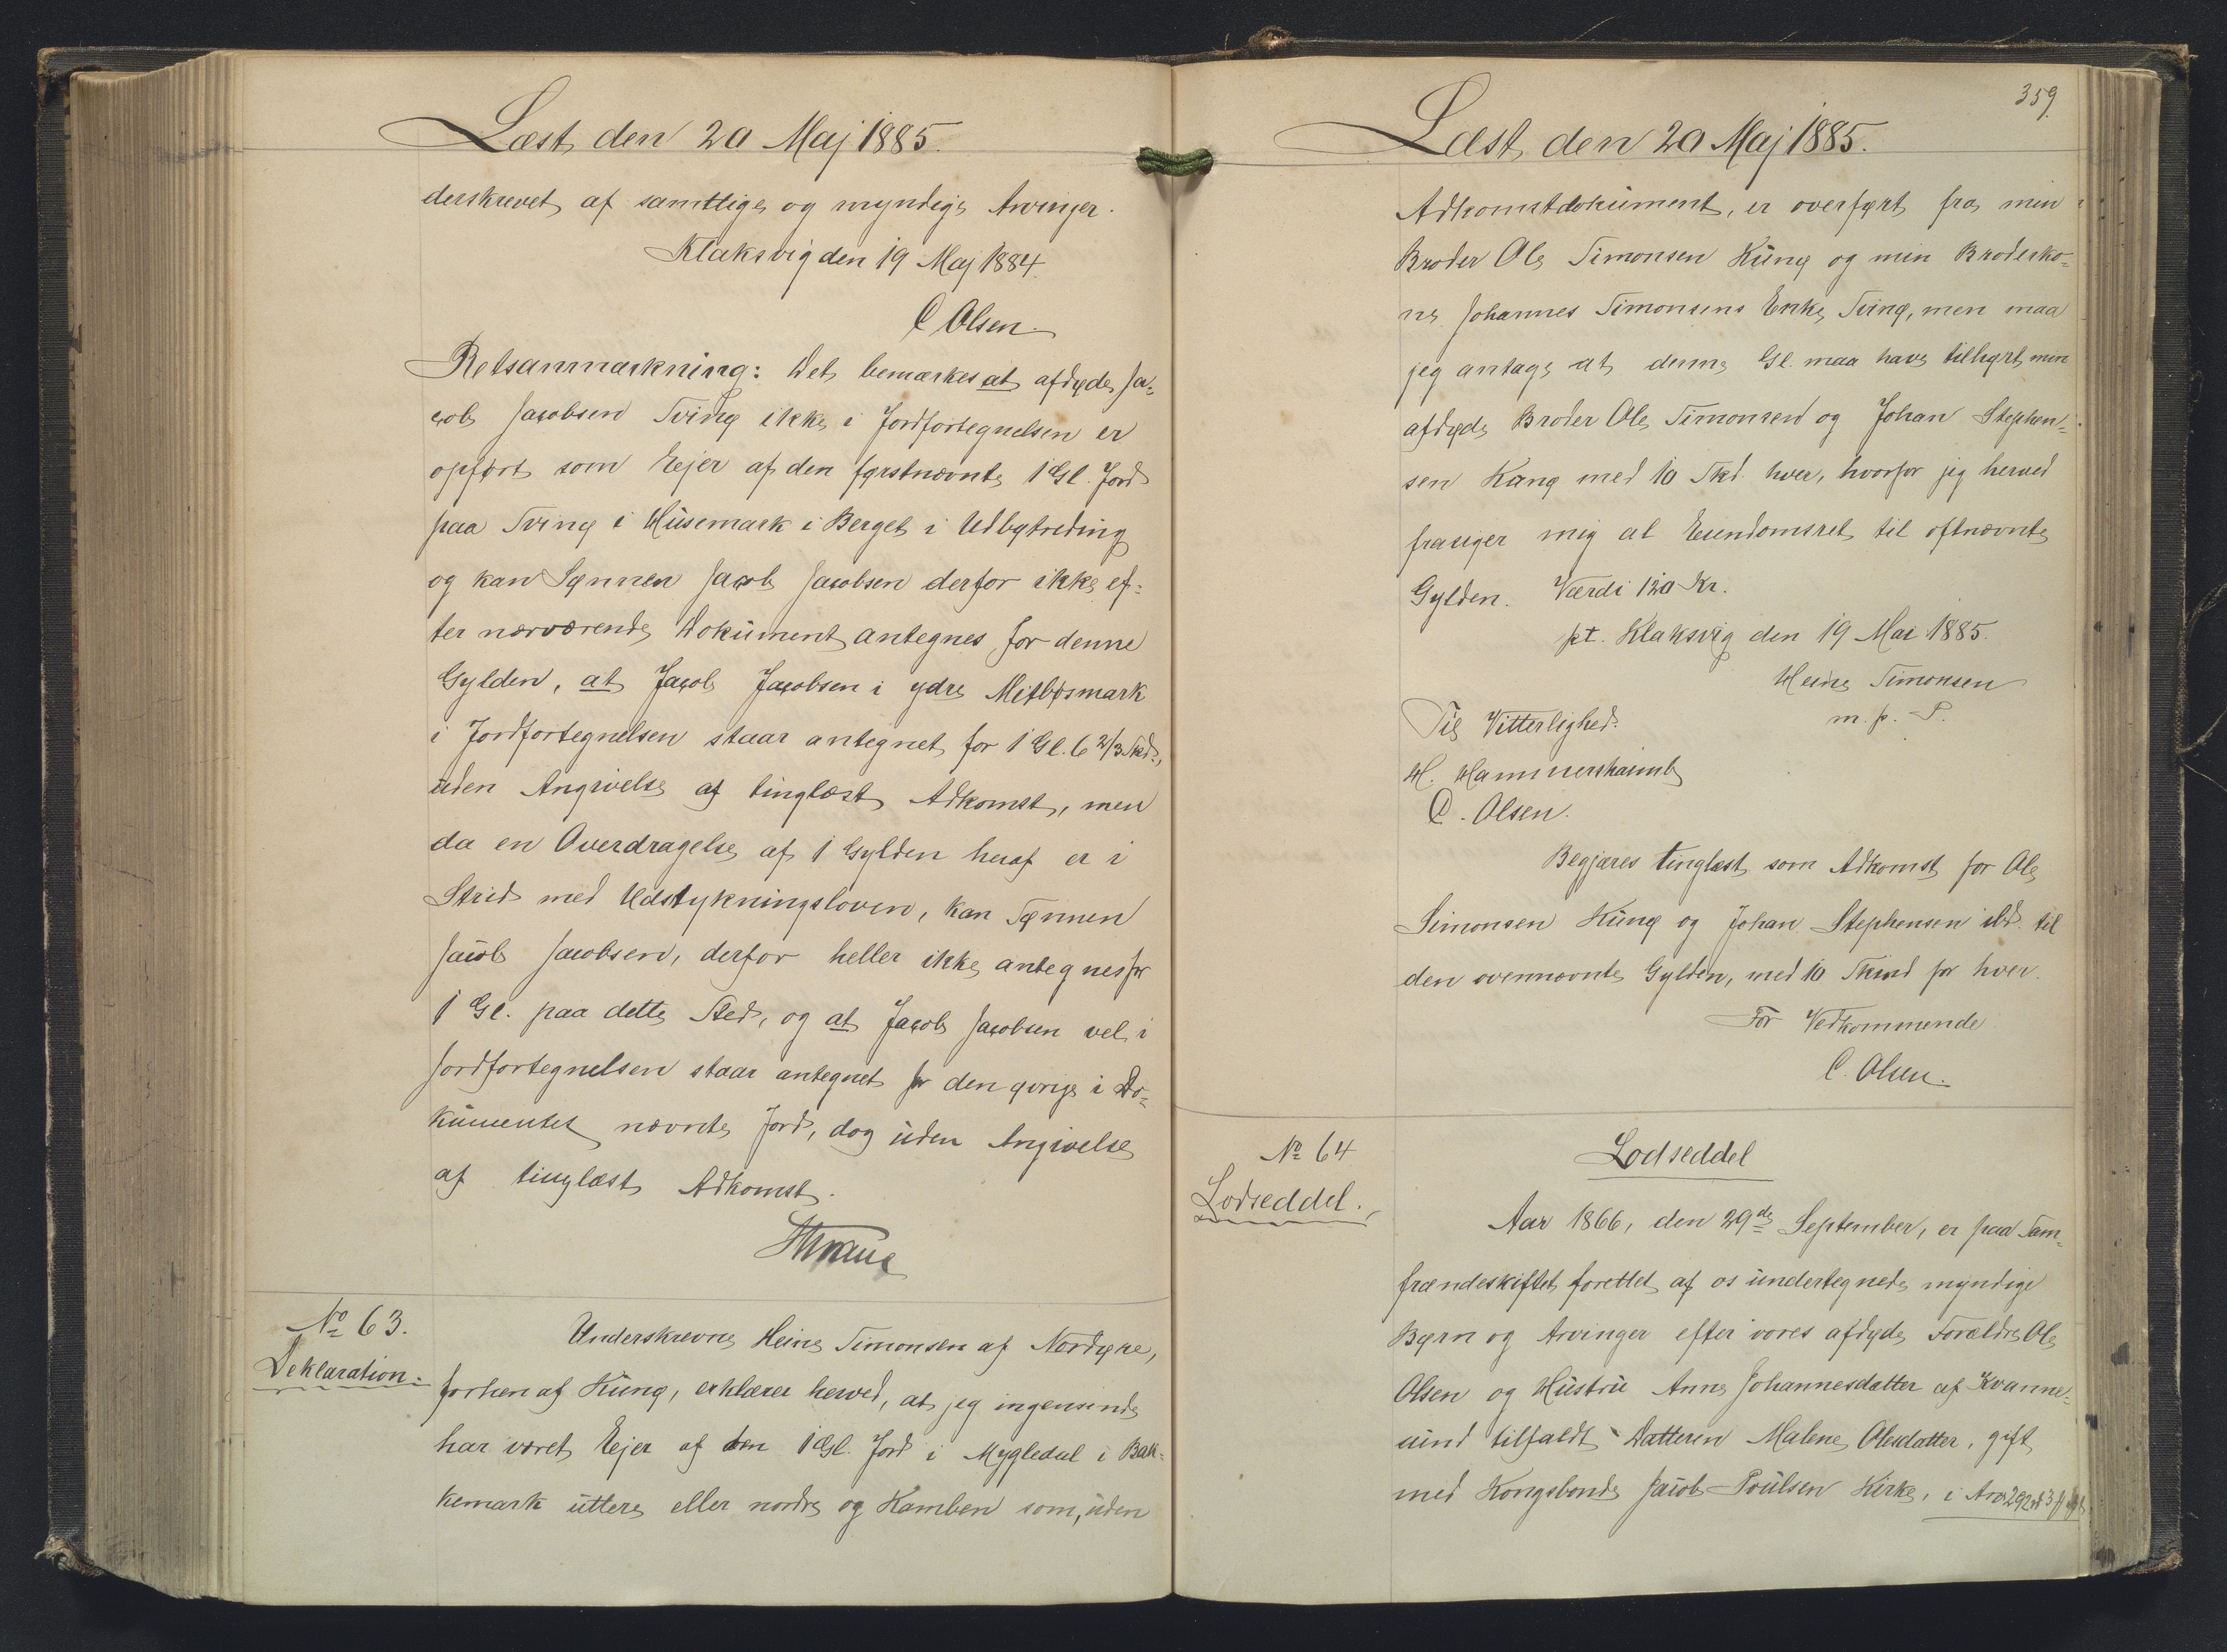 Læst den 20 Maj 1885.
derskrevet af samtlige og myndige Arvinger.
Klaksvig den 19 Maj 1884.
C Olsen.
Retsanmærkning: Det bemærkes at afdøde Ja-
cob Jacobsen Tving ikke i Jordfortegnelsen er
opført som Eejer af den førstnævnte 1 Gl. Jord
paa Tving i Húsemark i Berget i Udbøtreding
og kan Sønnen Jacob Jacobsen derfor ikke ef-
ter nærværende Dokúment antegnes for denne
Gylden, at Jacob Jacobsen i ydre Mitbømark
i Jordfortegnelsen staar antegnet for 1 Gl. 6 2/3 Skd.,
úden Angivelse af tinglæst Adkomst, men
da en Overdragelse af 1 Gylden heraf er i
Strid med Udstykningsloven, kan Sønnen
Jacob Jacobsen, derfor heller ikke antegnes for
1 Gl. paa dette Sted, og at Jacob Jacobsen vel i
Jordfortegnelsen staar antegnet for den øvrige i Do-
kúmentet nævnte Jord, dog úden Angivelse
af tinglæst Adkomst.
No 63.
Deklaration.
Underskrevne Heine Simonsen af Nordøre,
forhen af Kúng, erklærer herved, at jeg ingensinde
har været Eejer af den 1 Gl. Jord i Mygledal i Bak-
kemark úttere eller nordre og Kamben som, úden
359
Læst den 20 Maj 1885.
Adkomstdokúment, er overført fra min
Broder Ole Simonsen Kúng og min Broderko-
ne Johannes Simonsens Enke Tving, men maa
jeg antage at denne Gl. maa have tilhørt min
afdøde Broder Ole Simonsen og Johan Stephen-
sen Kúng med 10 Skd. hver, hvorfor jeg herved
frasiger mig al Eiendomsret til oftnævnte
Gylden. Værdi 120 Kr.
pt. Klaksvig den 19 Mai 1885.
Heine Simonsen
m. p. P.
Til Vitterlighed:
H. Hammershaimb
C. Olsen.
Begjæres tinglæst som Adkomst for Ole
Simonsen Kúng og Johan Stephensen ibd. til
den ovennævnte Gylden, med 10 Skind for hver.
For Vedkommende
C. Olsen.
No 64
Lodseddel.
Lodseddel
Aar 1866, den 29de September, er paa Sam-
frændeskiftet forettet af os úndertegnede myndige
Børn og Arvinger efter vores afdøde Forældre Ole
Olsen og Hústrú Anne Johannesdatter af Kvanne-
súnd tilfaldt Datteren Malene Olesdatter, gift
med Kongsbonde Jacob Poúlsen Kirke, i Arv